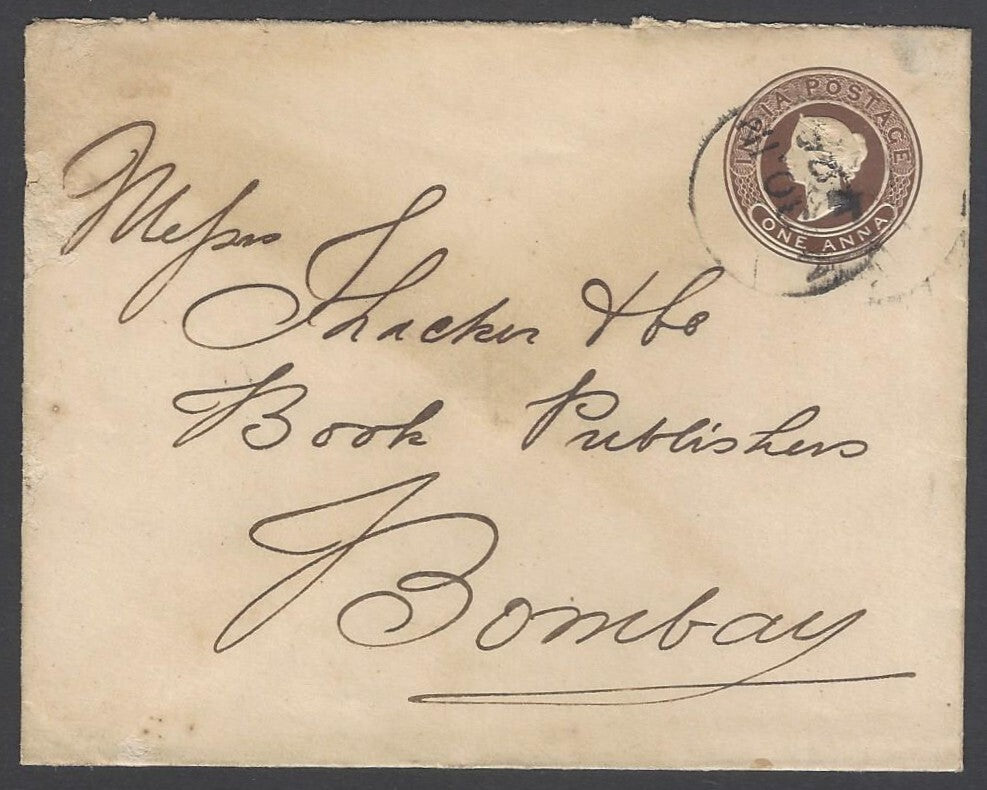 INDIA POSTAGE
ONE ANNA
Messrs
Thacker & Co
Book Publishers
Bombay